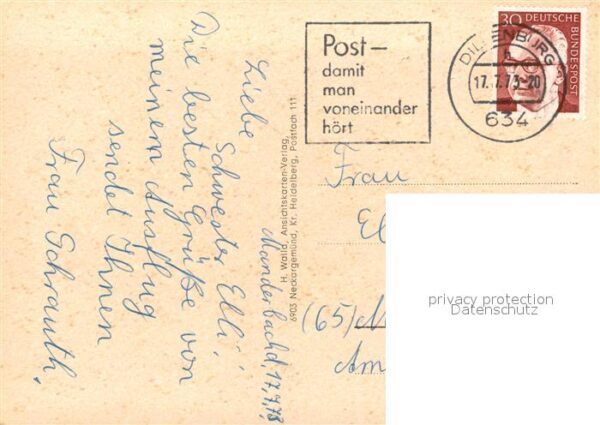 Manderbach d, 17.7.73
Liebe
Schwester Elli!
Die besten Grüße von
meinem Ausflug
sendet Ihnen
Frau Schrauth.
H. Walld, Ansichtskarten-Verlag,
6903 Neckargemünd, Kr. Heidelberg, Postfach 111
Post –
damit
man
voneinander
hört
DILLENBURG 1
17.7.73-20
634
30 DEUTSCHE
BUNDESPOST
Frau
El
(65) M
Am
privacy protection
Datenschutz